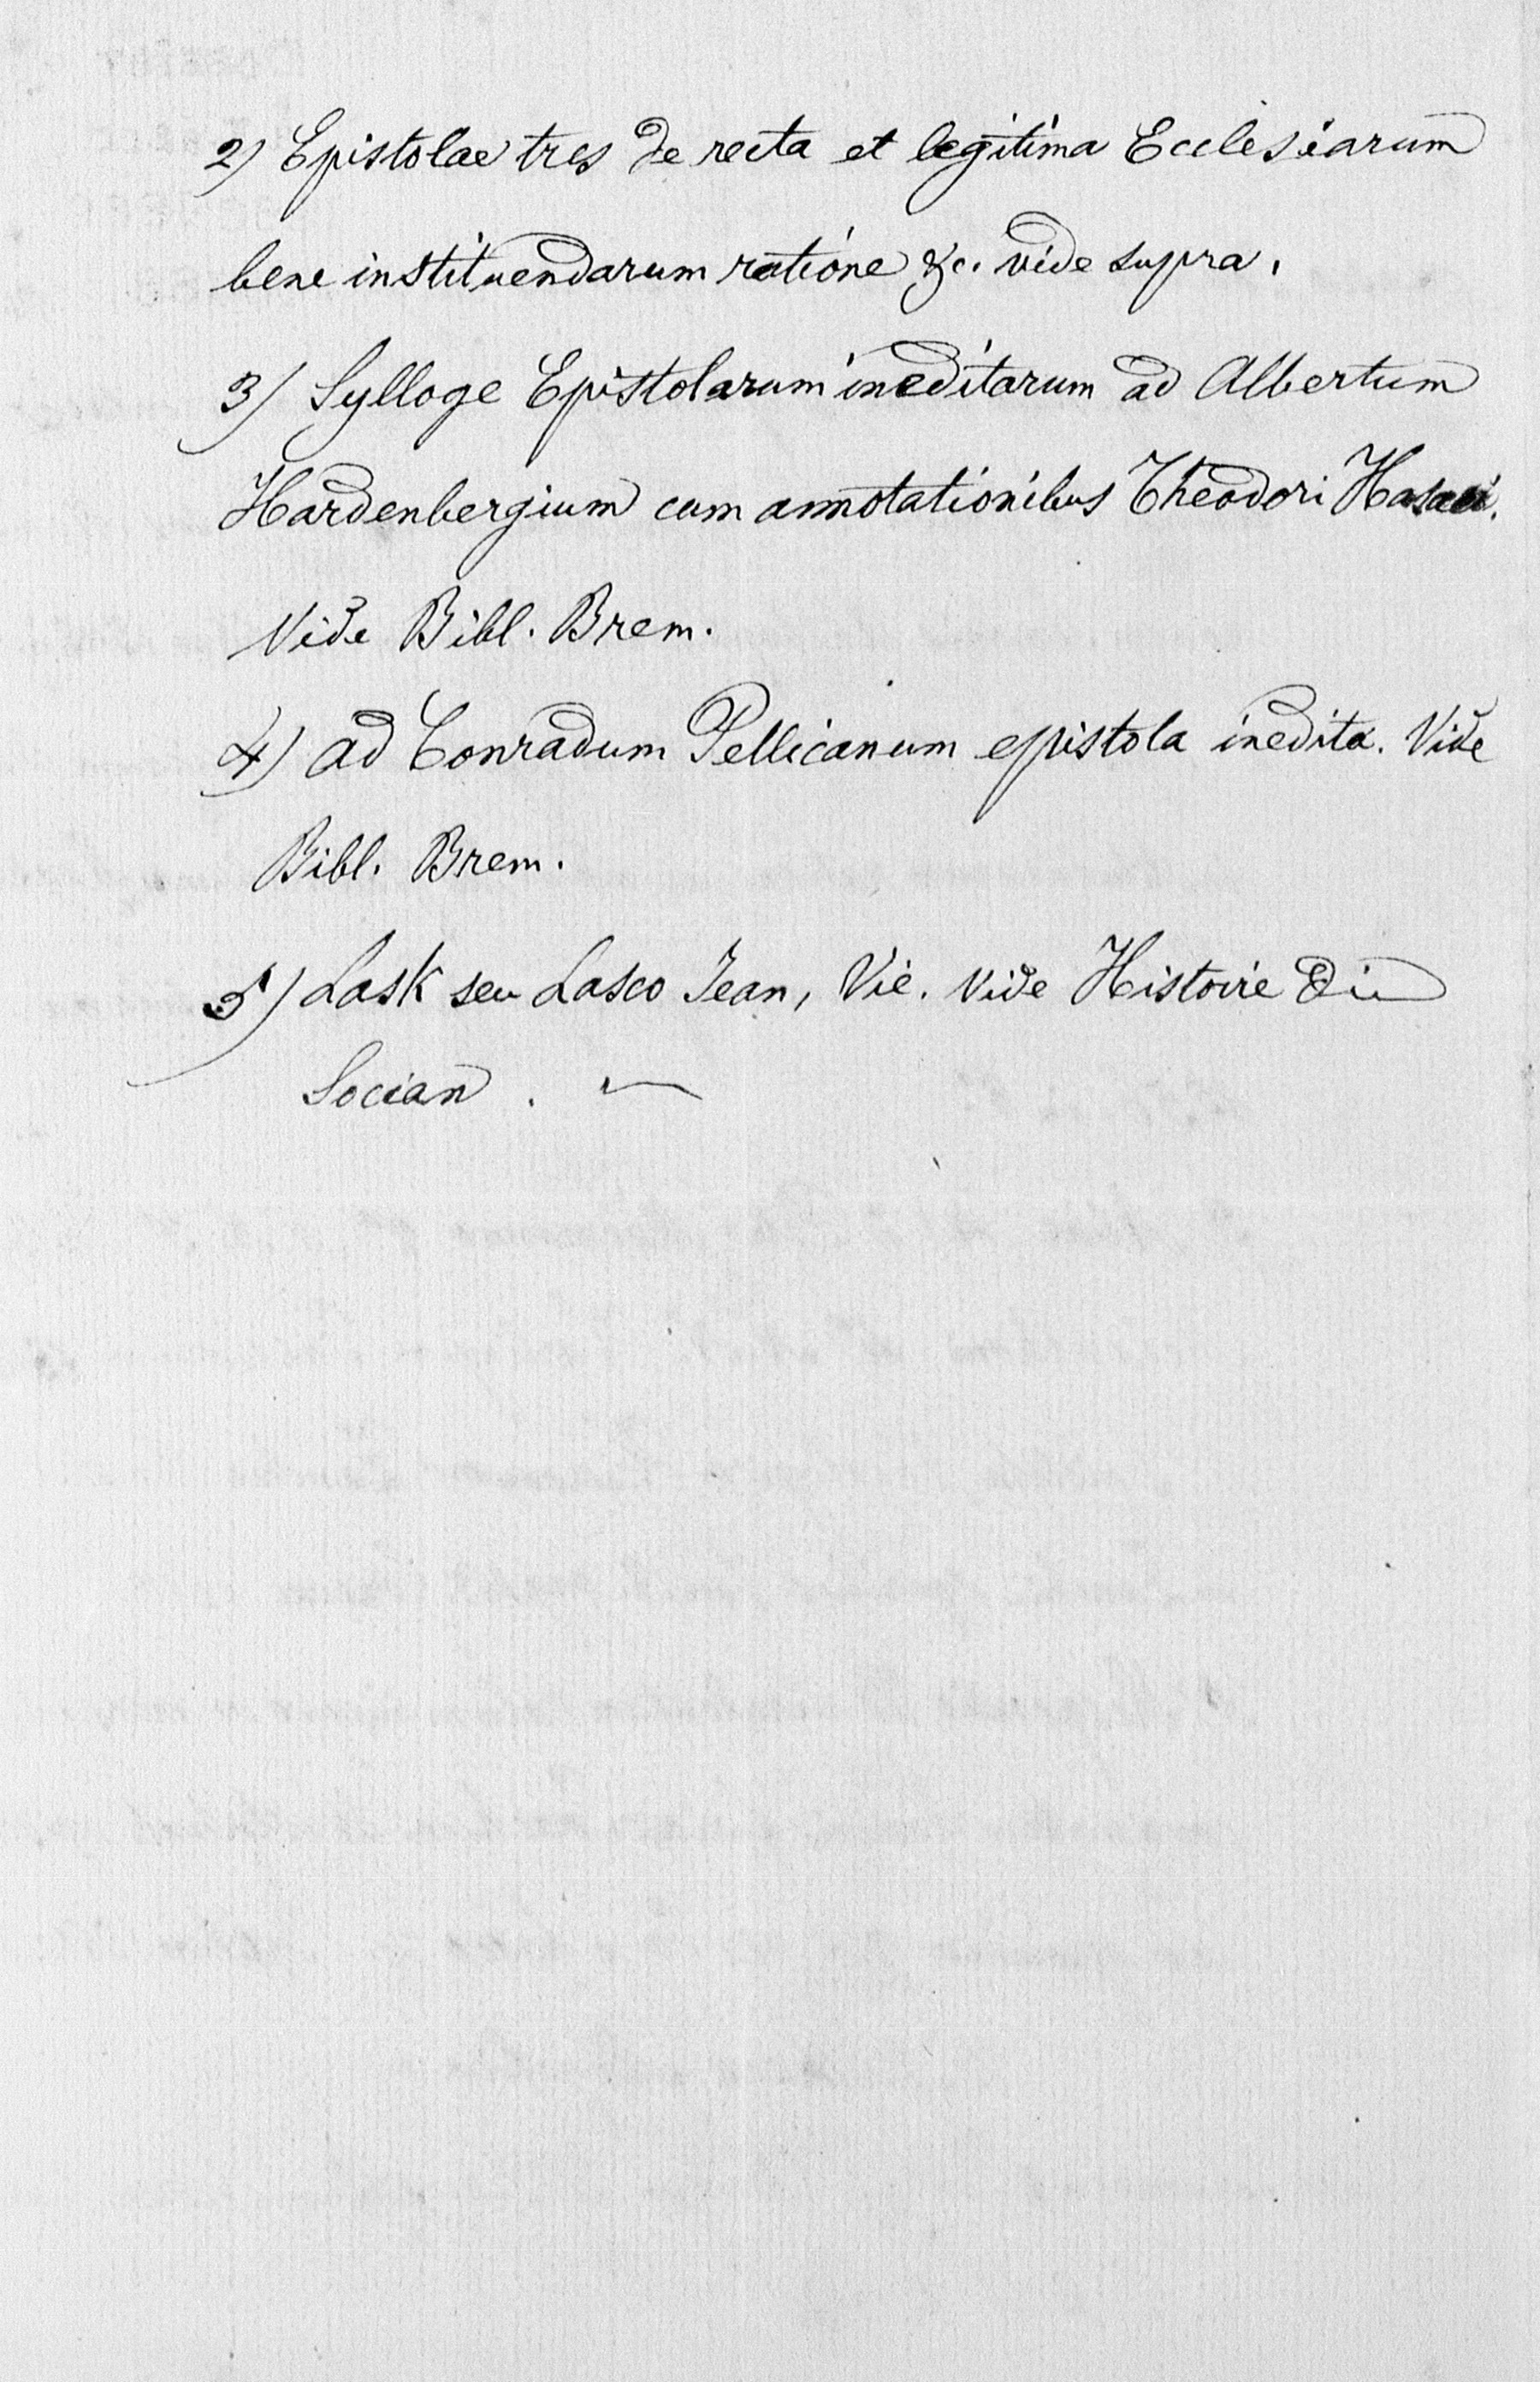 2) Epistolae tres de recta et legitima Ecclesiarum
bene instituendarum ratione &c. vide supra.
3) Sylloge Epistolarum ineditarum ad Albertum
Hardenbergium cum annotationibus Theodori Hasaei.
Vide Bibl. Brem.
4) ad Conradum Pellicanum epistola inedita. Vide
Bibl. Brem.
5) Lask seu Lasco Jean, Vie. Vide Histoire du
Socian.